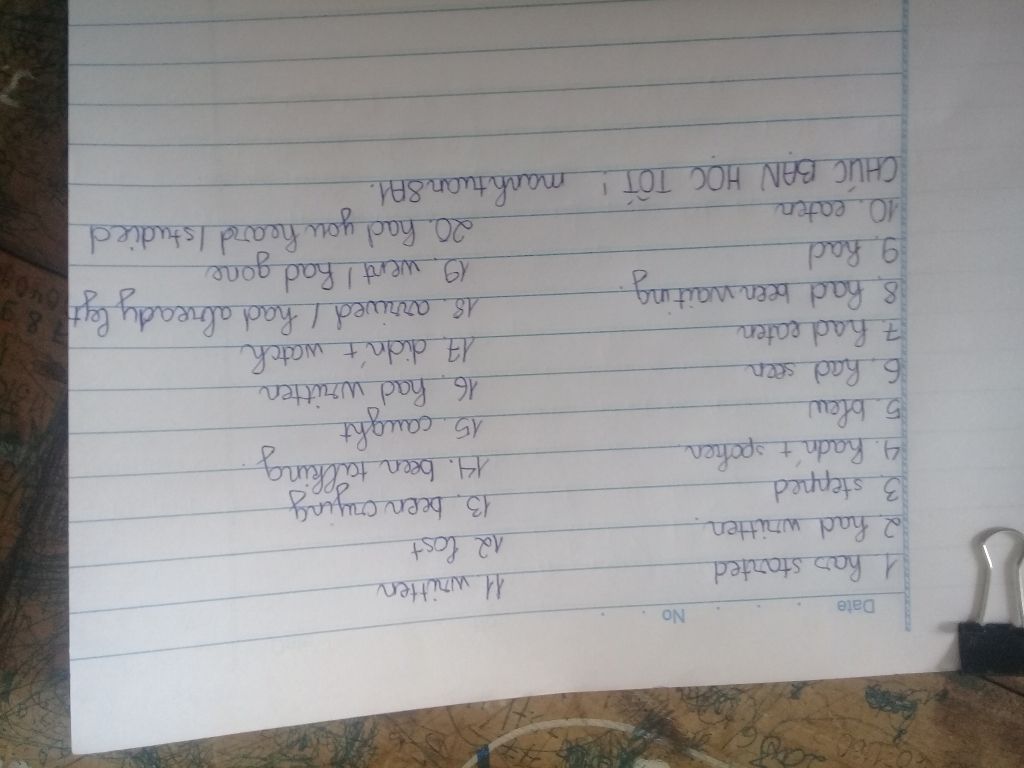 Date No
1. has started 11 written
2. had written. 12 lost
3. stepped 13. been crying
4. hadn't spoken 14. been talking.
5. blew 15. caught
6. had seen 16. had written
7. had eaten 17. didn't watch
8. had been waiting. 18. arrived / had already left
9. had 19. went / had gone
10. eaten 20. had you heard / studied
CHÚC BẠN HỌC TỐT! manhtuan8A1.